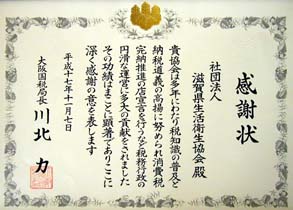 感謝状
社団法人
滋賀県生活衛生協会 殿
貴協会は多年にわたり税知識の普及と
納税道義の高揚に努められ消費税
完納推進の店宣言を行うなど税務行政の
円滑な運営に多大の貢献をされました
その功績はまことに顕著でありここに
深く感謝の意を表します
平成十七年十一月七日
大阪国税局長 川北 力